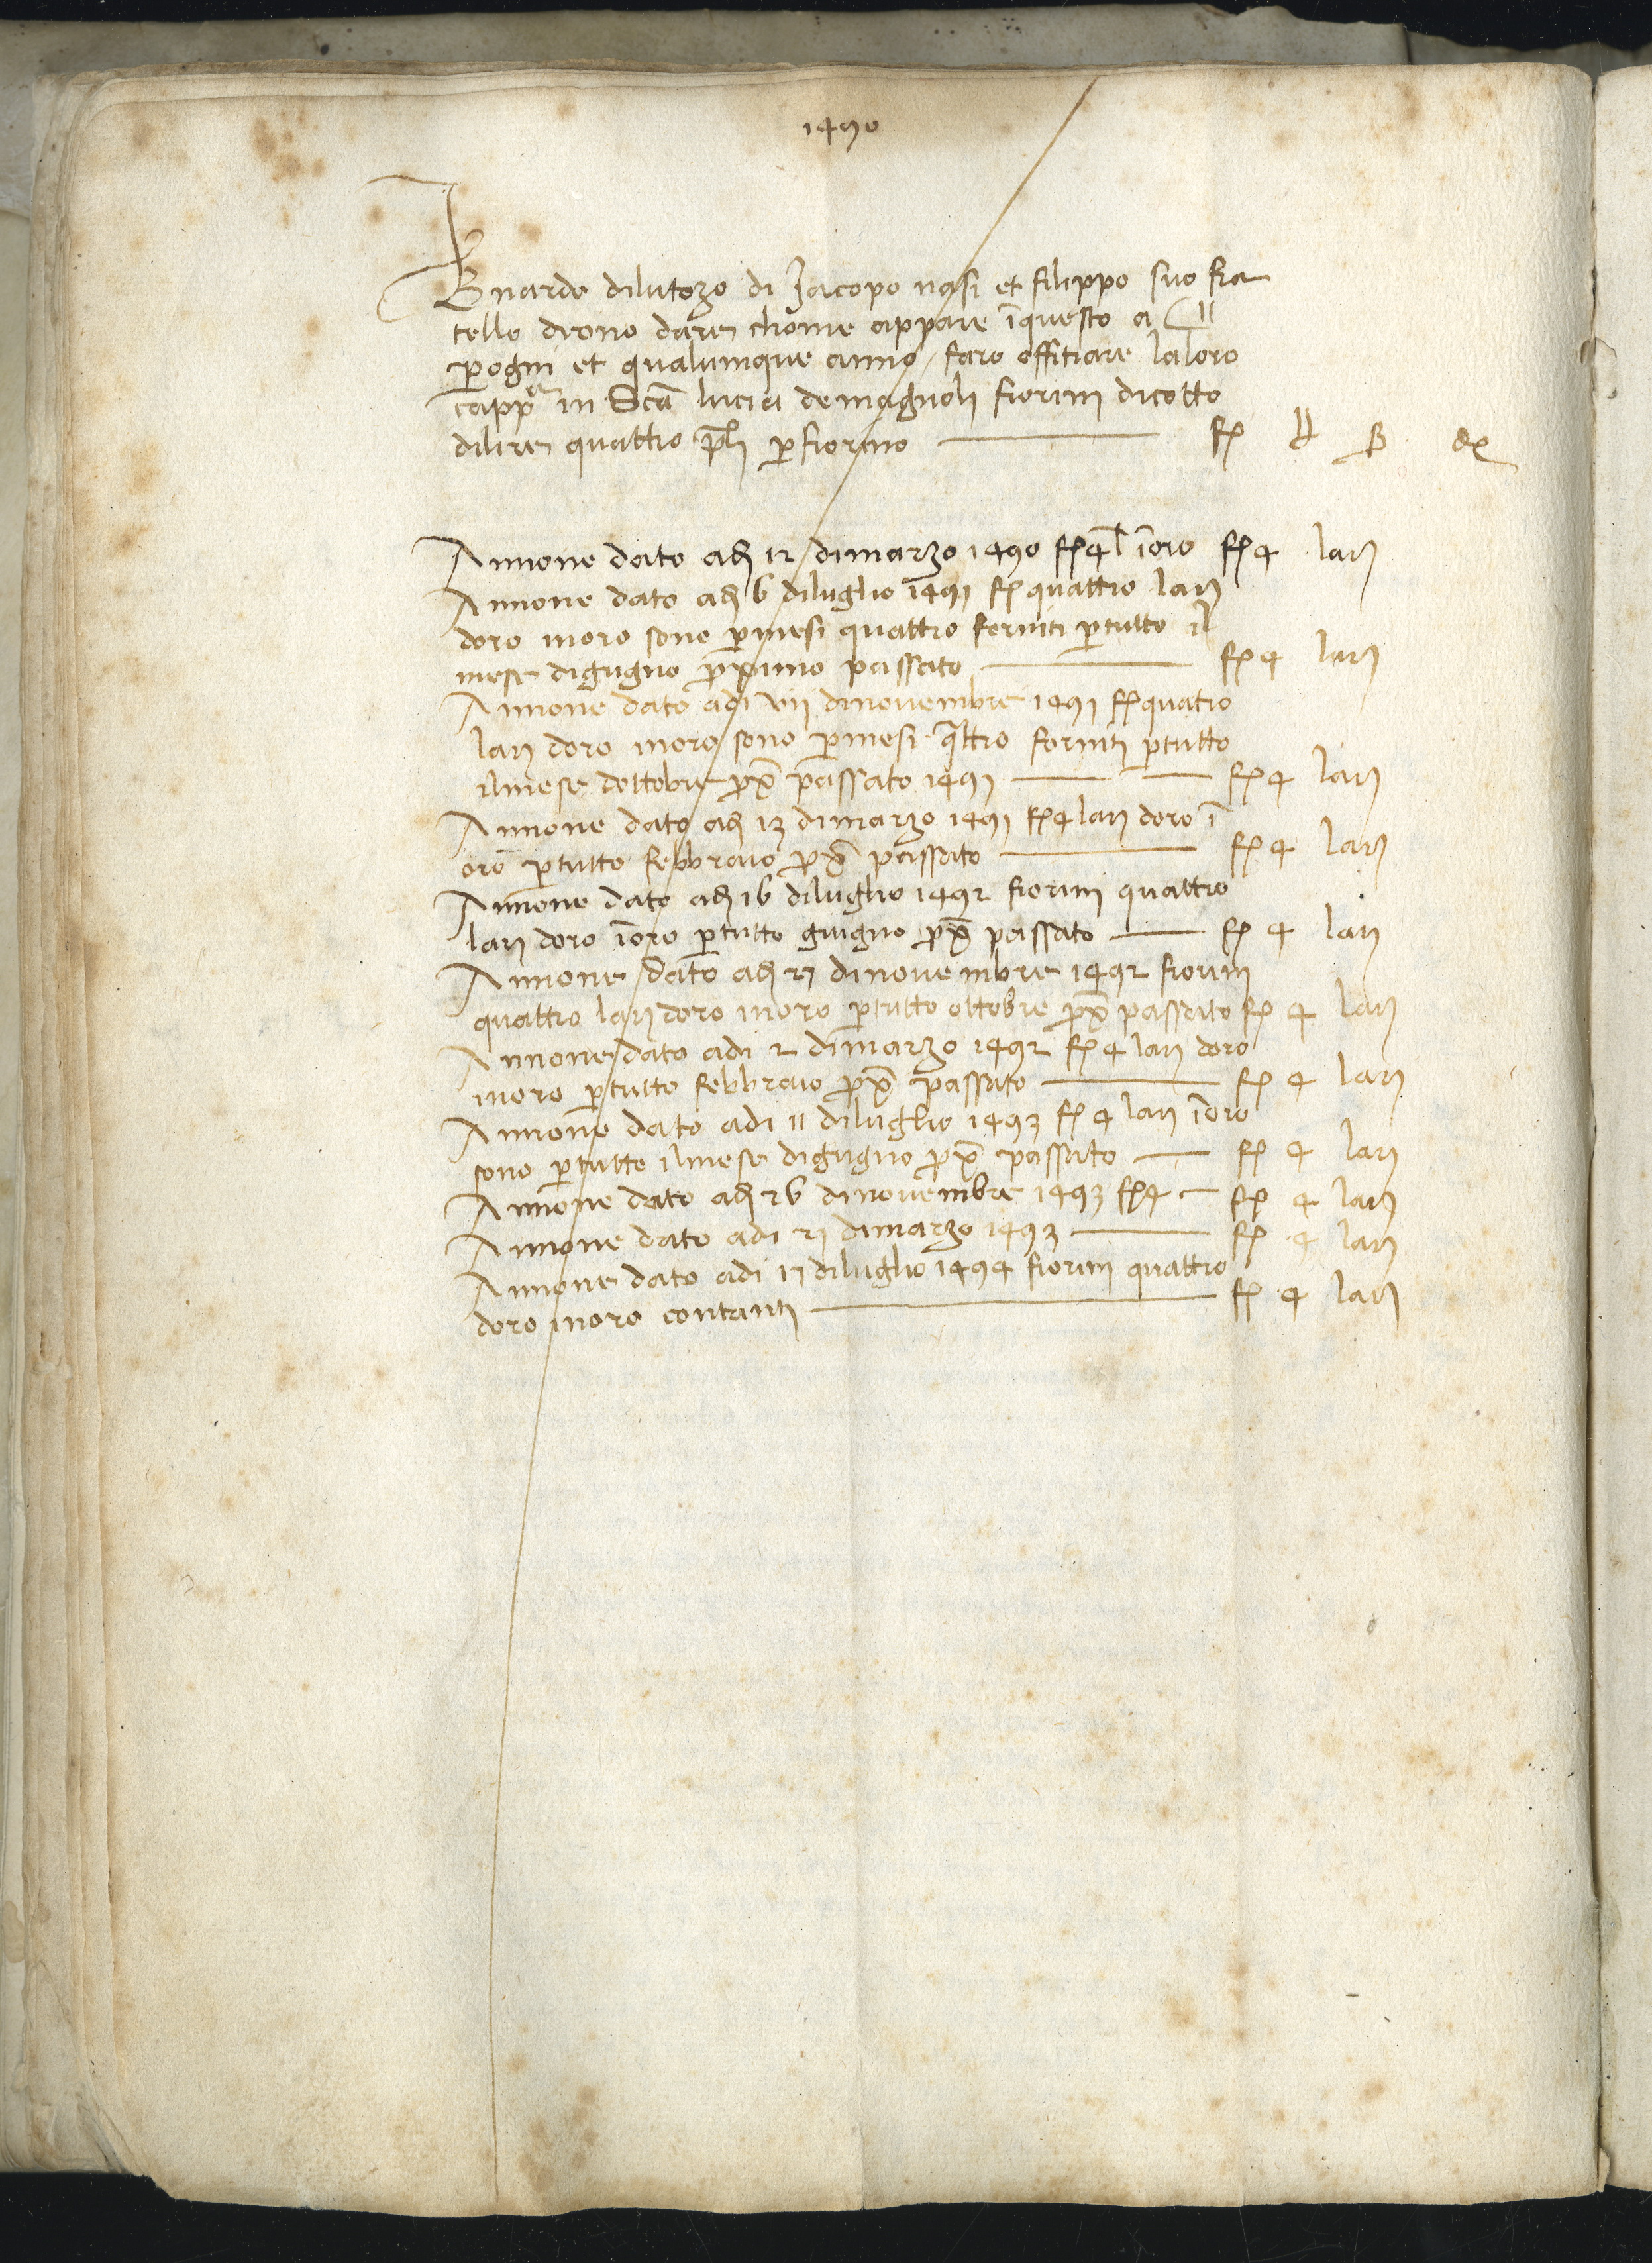 1490
Bnardo dilutozo di Jacopo nasi et filippo suo fra
tello deono dare chome appare īquesto a C 11
p̱ogni et qualumque anno faro offitiare laloro
cappa in Scā lucia demagnoli fiorini dicotto
dilire quattro plī p̱fiorino — f
Annone dato adi 12 dimarzo 1490 f 4 l īoro f 4 larj
Annone dato adi 6 diluglio 1491 f quattro larj
doro inoro sono p̱mesi quattro forniti p̱tutto il
mese digugno p̱ximo passato — f 4 larj
Annone dato adi vii dinovembre 1491 f quatro
larj doro inoro sono p̱mesi qattro forniti p̱tutto
ilmese dottobre px̄ passato 1491 — f 4 larj
Annone dato adi 13 dimarzo 1491 f 4 larj doro ī
oro p̱tutto febbraio px̄ passato — f 4 larj
Annone dato adi 16 diluglio 1492 fiorini quattro
larj doro īoro p̱tutto giugno px̄ passato — f 4 larj
Annone dato adi 27 dinovembre 1492 fiorini
quattro larj doro inoro p̱tutto ottobre px̄ passato f 4 larj
Annone dato adi 2 dimarzo 1492 f 4 larj doro
inoro p̱tutto febbraio px̄ passato — f 4 larj
Annone dato adi 11 diluglio 1493 f 4 larj īoro
sono p̱tutto ilmese digugno px̄ passato — f 4 larj
Annone dato adi 26 dinovembre 1493 f 4 — f 4 larj
Annone dato adi 21 dimarzo 1493 — f 4 larj
Annone dato adi 17 diluglio 1494 fiorini quattro
doro inoro contanti — f 4 larj